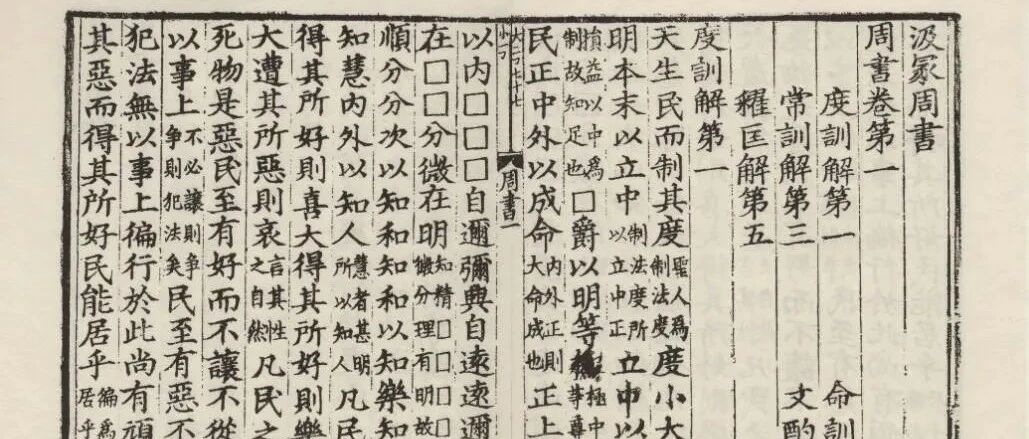 汲冢周書
周書卷第一
度訓解第一　命訓
常訓解第三　文酌
糴匡解第五
度訓解第一
天生民而制其度聖人爲制法度度小大
明本末以立中制法度所以立中正立中以
損益以中爲制故知足也□爵以明等極極中
民正中外以成命内外正則大命成也正上
周書一
以内□□□自邇彌興自遠遠邇
在□□分微在明知精□□□微分理有明故□
順分分次以知和知和以知樂知
知慧内外以知人慧者甚明所以知人凡民
得其所好則喜大得其所好則樂
大遭其所惡則哀言其性之自然凡民之
死物是惡民至有好而不讓不從
以事上不必讓則爭爭則犯法矣民至有惡不
犯法無以事上徧行於此尚有頑
其惡而得其所好民能居乎徧爲居乎